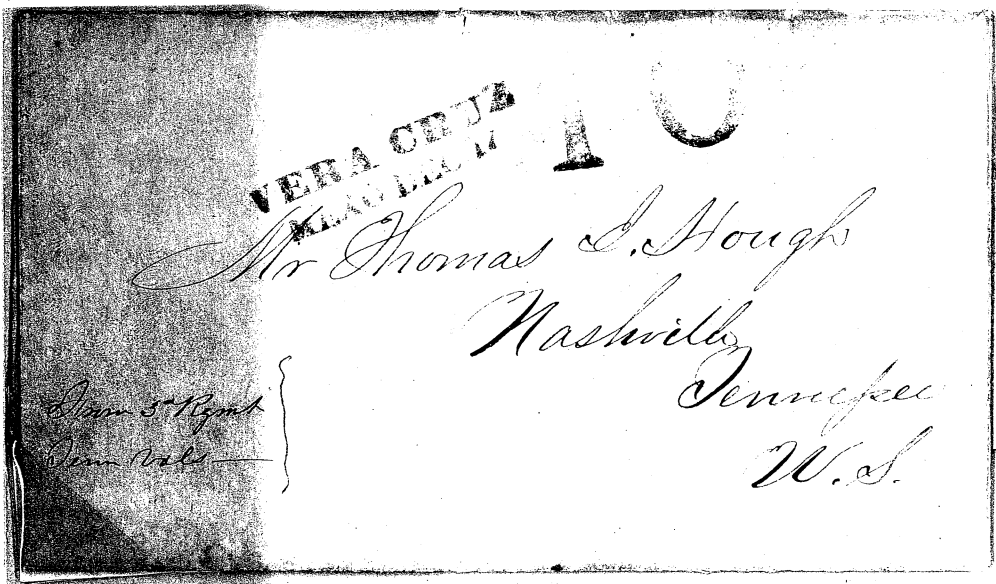 VERA CRUZ 10
MEX. DEC. 17
Mr Thomas I. Hough
Nashville
Tennessee
U. S.
From 3d Rgmt
Tenn Vols